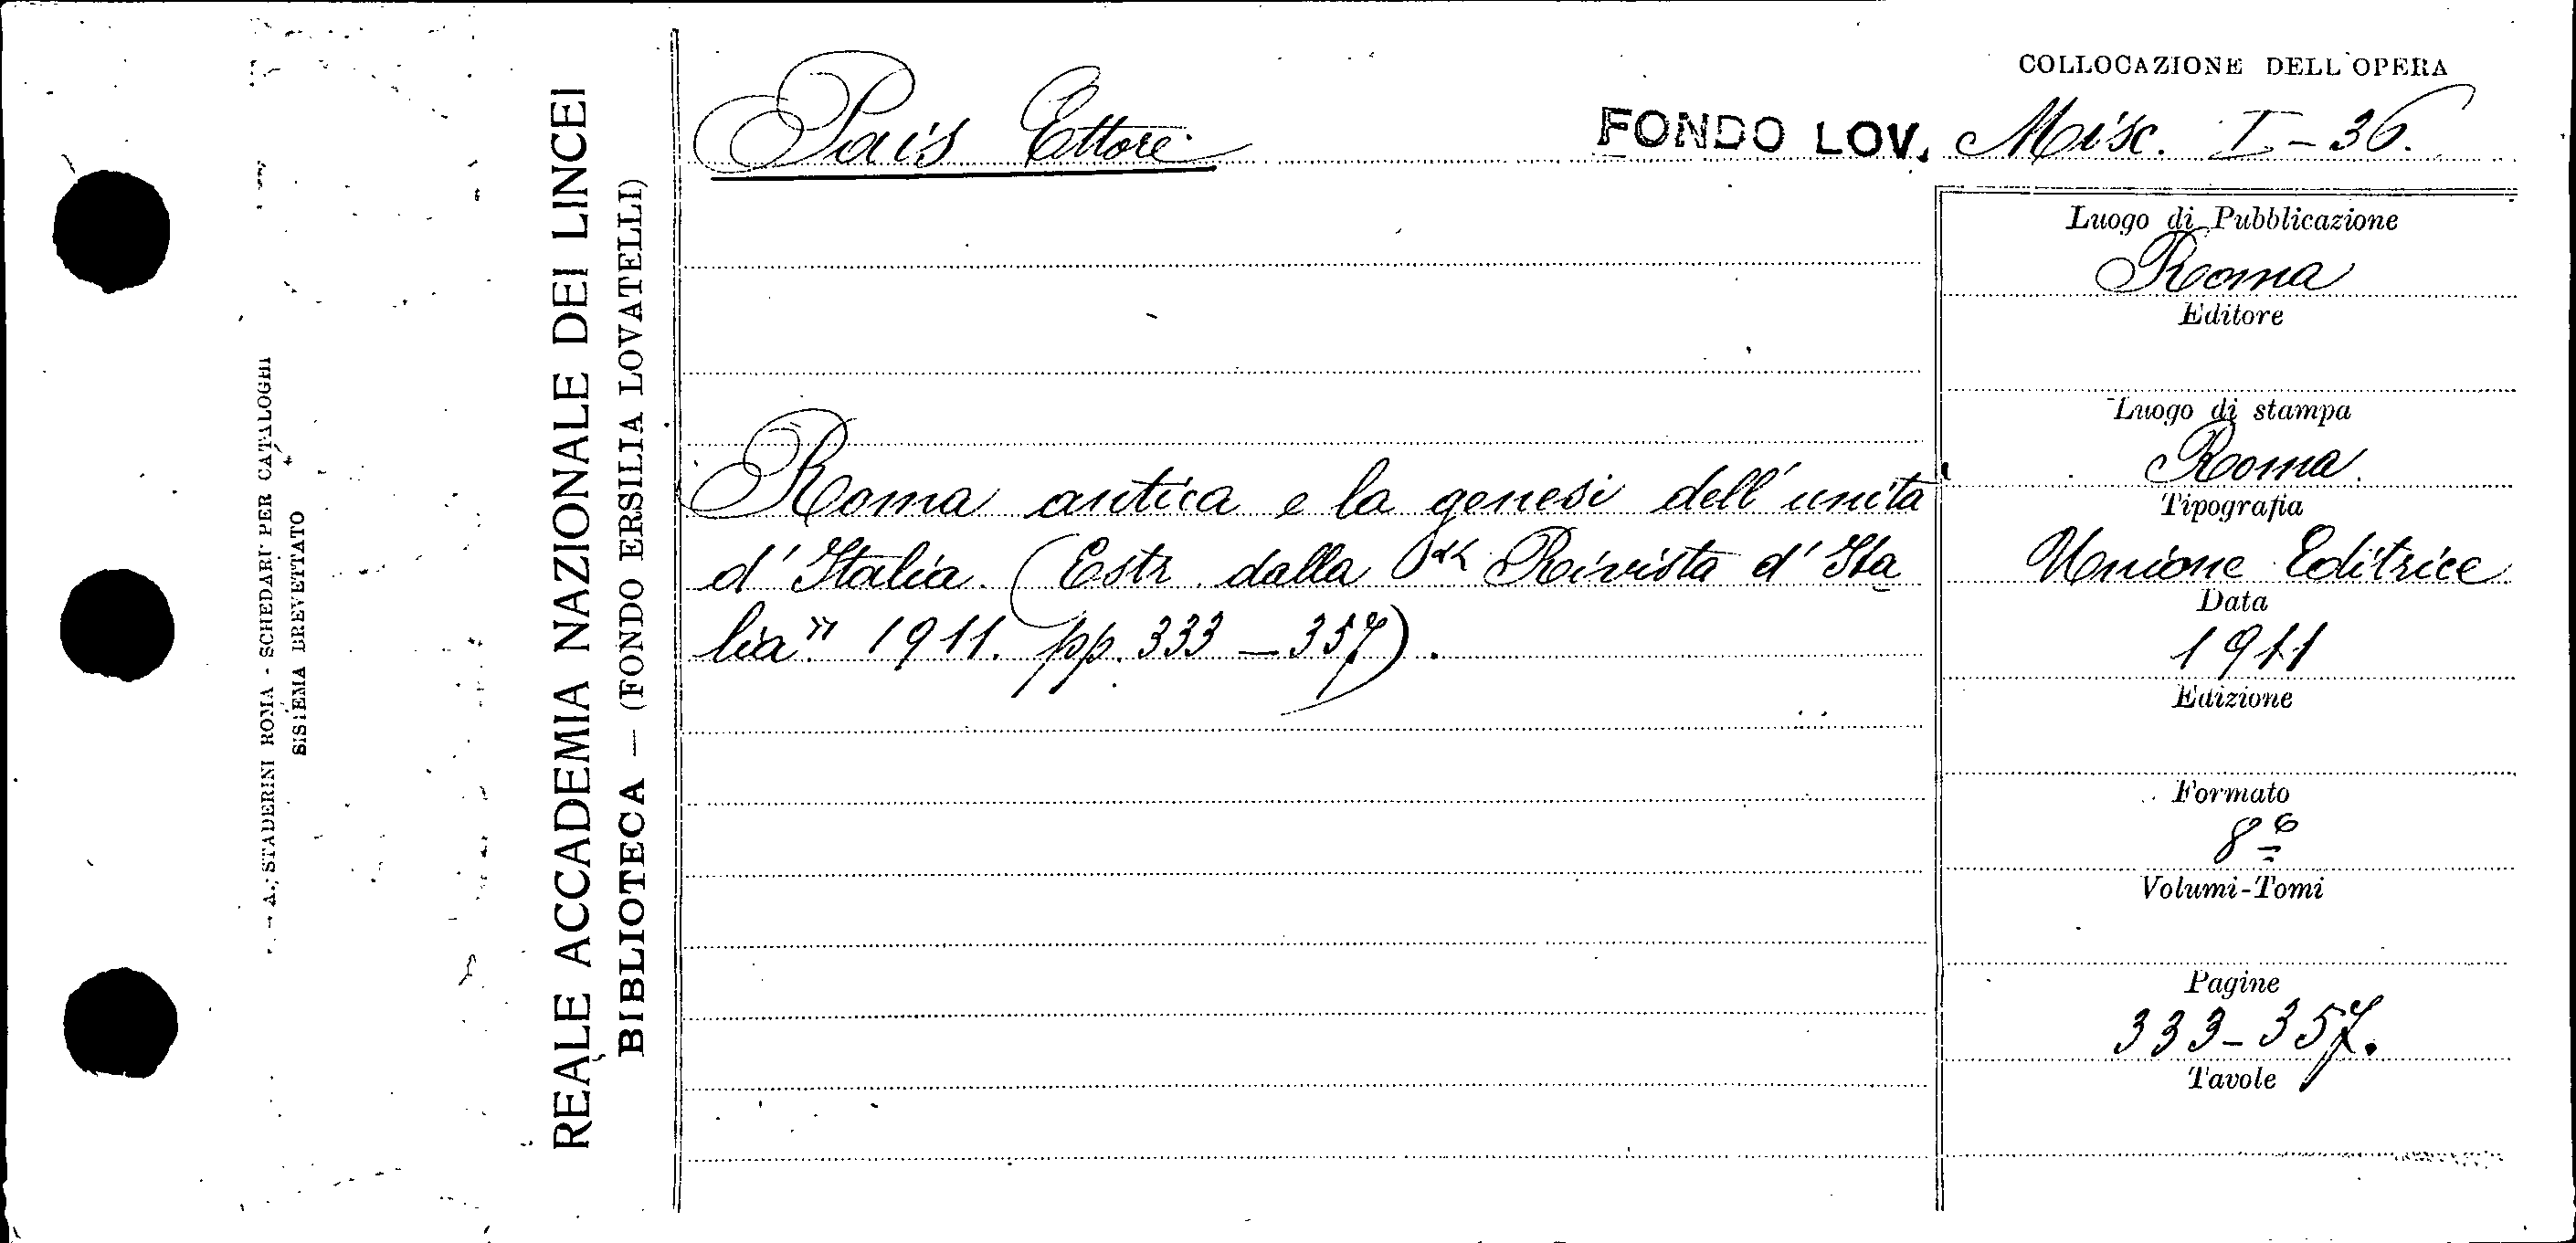 A. STADERINI ROMA - SCHEDARI PER CATALOGHI
SISTEMA BREVETTATO
REALE ACCADEMIA NAZIONALE DEI LINCEI
BIBLIOTECA — (FONDO ERSILIA LOVATELLI)
Pais Ettore
COLLOCAZIONE DELL'OPERA
FONDO LOV. Misc. I-36.
Roma antica e la genesi dell'unità
d'Italia. (Estr. dalla « Rivista d'Ita
lia" 1911. pp. 333-357).
Luogo di Pubblicazione
Roma
Editore
Luogo di stampa
Roma.
Tipografia
Unione Editrice
Data
1911
Edizione
Formato
8º
Volumi-Tomi
Pagine
333-357.
Tavole